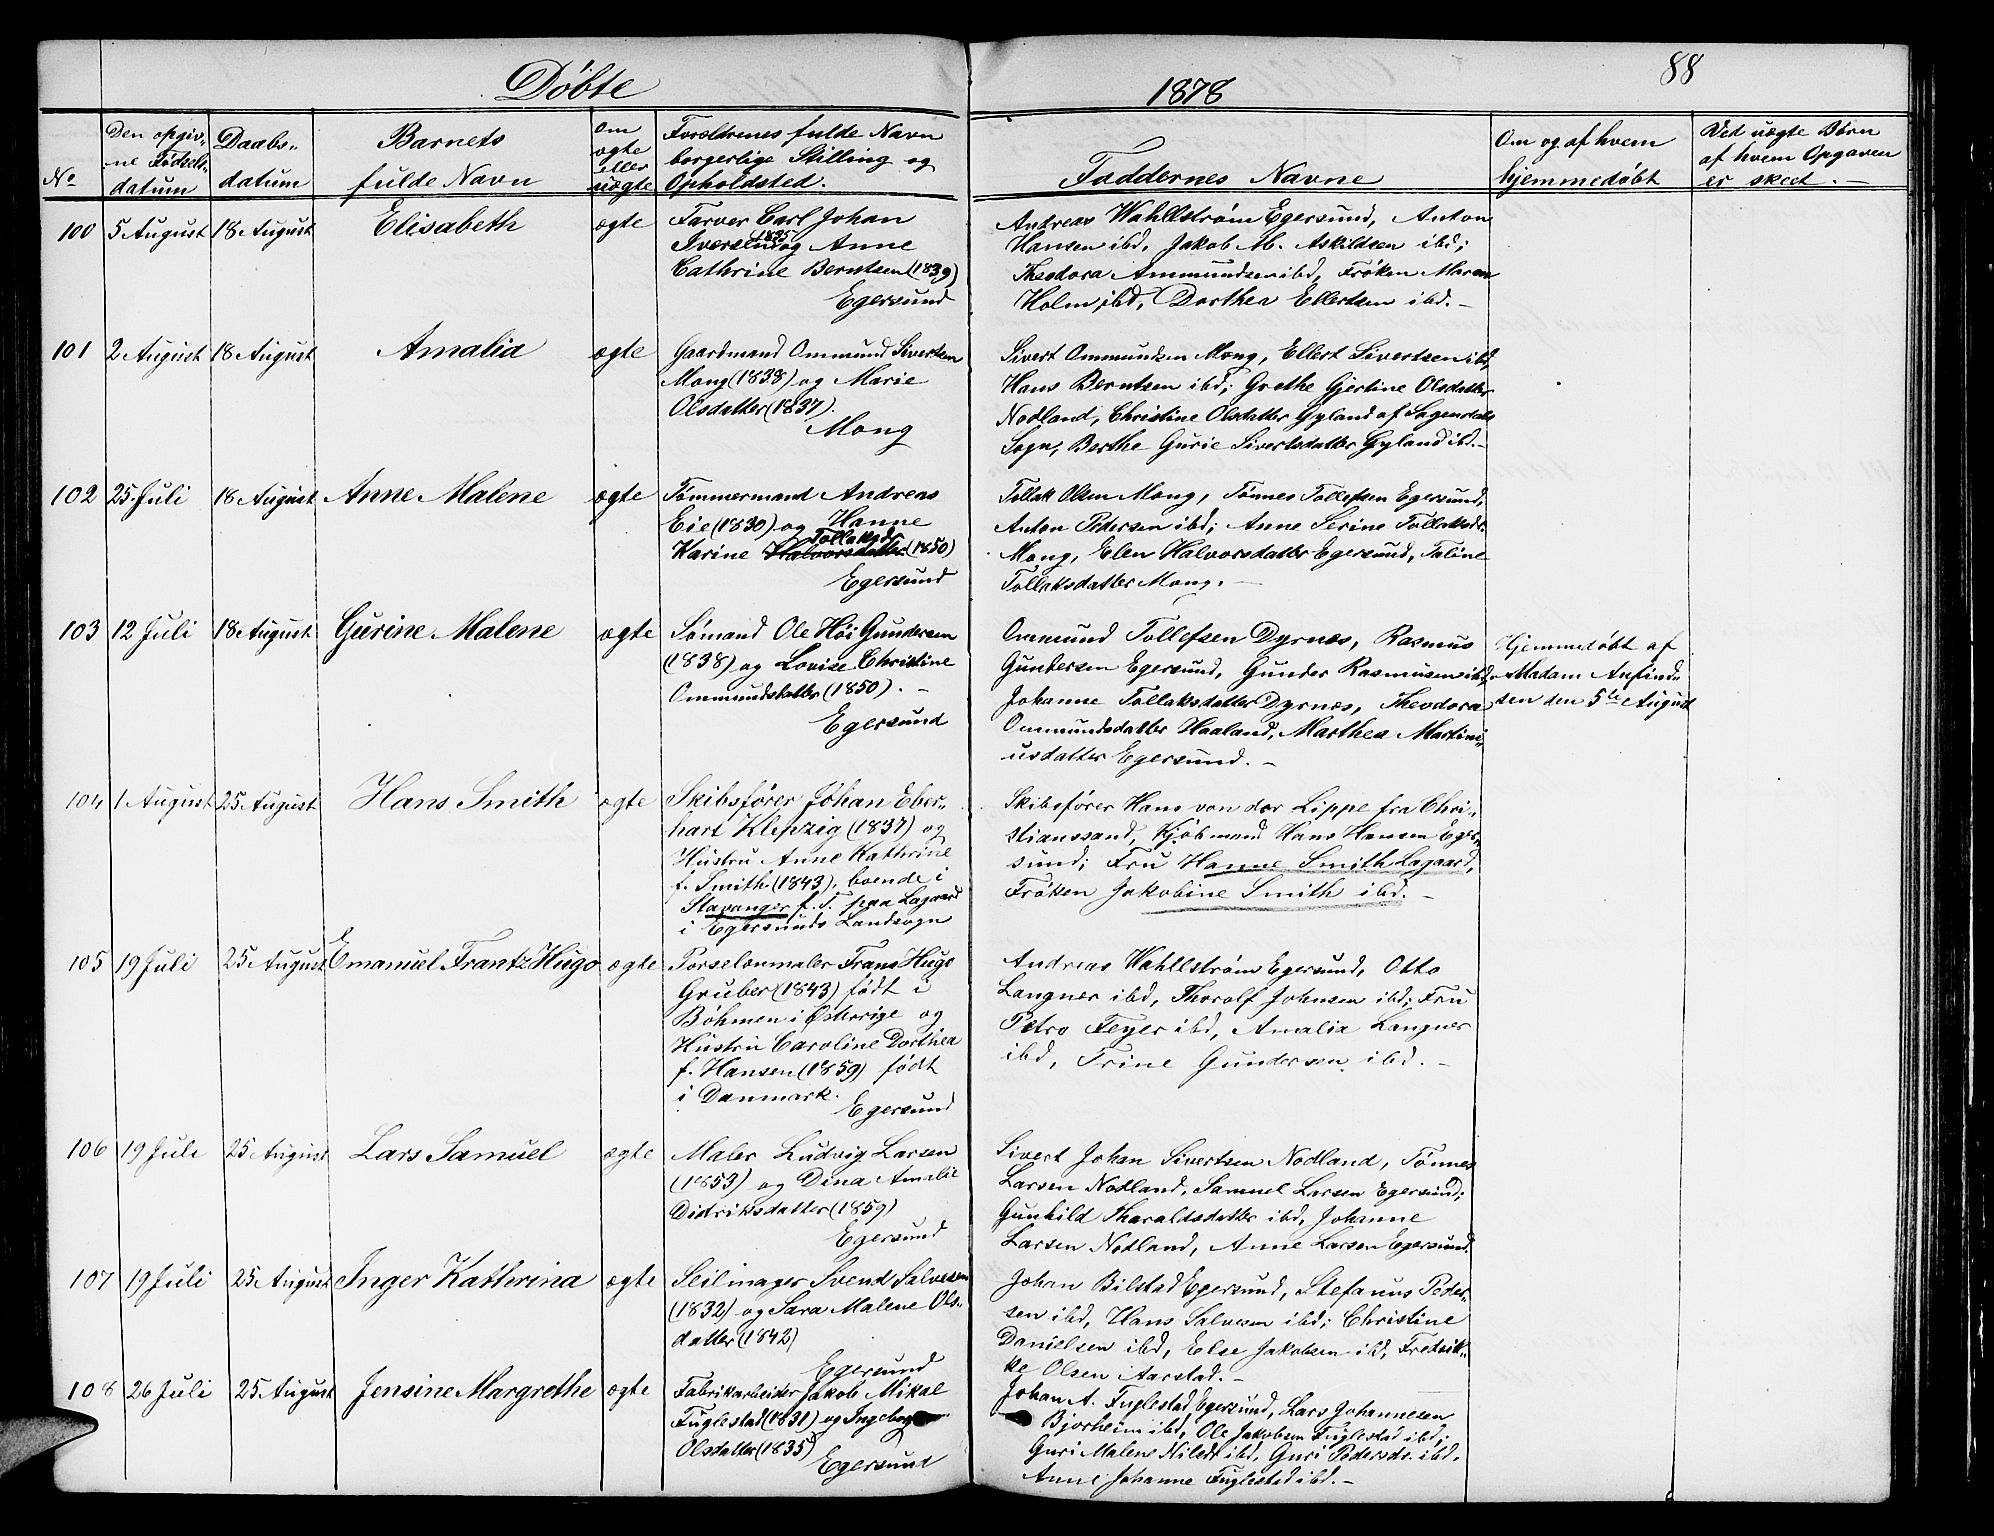 Døbte
1878
88
No
Den opgiv-
ne Fødsels-
datum
Daabs-
datum
Barnets
fulde Navn
Om
ægte
eller
uægte
Forældrenes fulde Navn
borgerlige Stilling og
Opholdsted.
Faddernes Navne
Om og af hvem
hjemmedøbt
Ved uægte Børn
af hvem Opgaven
er skeet. —
100 5 August 18 August Elisabeth ægte Farver Carl Johan
Iversen og Anne
Cathrine Berntsen (1839)
Egersund
Andreas Wahllstrøm Egersund, Anton
Hansen ibd, Jakob M. Askildsen ibd;
Theodora Ammundsen ibd, Frøken Maren
Holm ibd, Dorthea Ellertsen ibd. —
101 2 August 18 August Amalia ægte Gaardmand Ommund Sivertsen
Mong (1838) og Marie
Olsdatter (1837).
Mong
Sivert Ommundsen Mong, Ellert Sivertsen ibd,
Hans Berntsen ibd; Grethe Gjertine Olsdatter
Nodland, Christine Olsdatter Gyland af Sogndals
Sogn, Berthe Gurie Sivertsdatter Gyland ibd. —
102 25 Juli 18 August Anne Malene ægte Tømmermand Andreas
Eie (1830) og Hanne
Tollaksdr
Karine Halvorsdatter (1850)
Egersund
Tollak Olsen Mong, Tønnes Tollefsen Egersund,
Anton Pedersen ibd; Anne Serine Tollaksdr
Mong, Elen Halvorsdatter Egersund, Taline
Tollaksdatter Mong. —
103 12 Juli 18 August Gurine Malene ægte Sømand Ole Høi Gundersen
(1838) og Lovise Christine
Ommundsdatter (1850). —
Egersund
Ommund Tollefsen Dyrnæs, Rasmus
Gundersen Egersund, Gunder Rasmussen ibd,
Johanne Tollaksdatter Dyrnæs, Theodora
Ommundsdatter Haaland, Marthea Martini-
usdatter Egersund. —
Hjemmedøbt af
Madam Anfind-
sen den 5te August
104 1 August 25 August Hans Smith ægte Skibsfører Johan Eber-
hart Klepzig (1837) og
Hustru Anne Kathrine
f. Smith (1843), boende i
Stavanger f. T. paa Lagaard
i Egersunds Landsogn
Skibsfører Hans von der Lippe fra Chri-
stianssand, Kjøbmand Hans Hansen Eger-
sund; Fru Hanne Smith Lagaard,
Frøken Jakobine Smith ibd. —
105 19 Juli 25 August Emanuel Frantz Hugo ægte Porselonmaler Frans Hugo
Gruber (1843) født i
Bøhmen i Østerrige og
Hustru Caroline Dorthea
f. Hansen (1859) født
i Danmark.
Egersund
Andreas Wahllstrøm Egersund, Otto
Langner ibd, Thoralf Johnsen ibd; Fru
Petro Feyer ibd, Amalia Langner
ibd, Trine Gundersen ibd. —
106 19 Juli 25 August Lars Samuel ægte Maler Ludvig Larsen
(1853) og Dina Amalie
Didriksdatter (1859)
Egersund
Sivert Johan Sivertsen Nodland, Tønnes
Larsen Nodland, Samuel Larsen Egersund;
Gunhild Tharaldsdatter ibd, Johanne
Larsen Nodland, Anne Larsen Egersund.
107 19 Juli 25 August Inger Kathrina ægte Seilmager Svend Salvesen
(1832) og Sara Malene Ols-
datter (1842)
Egersund
Johan Bilstad Egersund, Stefanus Peder-
sen ibd, Hans Salvesen ibd; Christine
Danielsen ibd, Else Jakobsen ibd, Fredrik-
ke Olsen Aarstad. —
108 26 Juli 25 August Jensine Margrethe ægte Fabrikarbeider Jakob Mikal
Fuglestad (1831) og Ingeborg
Olsdatter (1835)
Egersund
Johan A. Fuglestad Egersund, Lars Johannesen
Bjorheim ibd, Ole Jakobsen Fuglestad ibd;
Guri Malene Nilsdr ibd, Guri Pedersdr. ibd,
Anne Johanne Fuglestad ibd. —